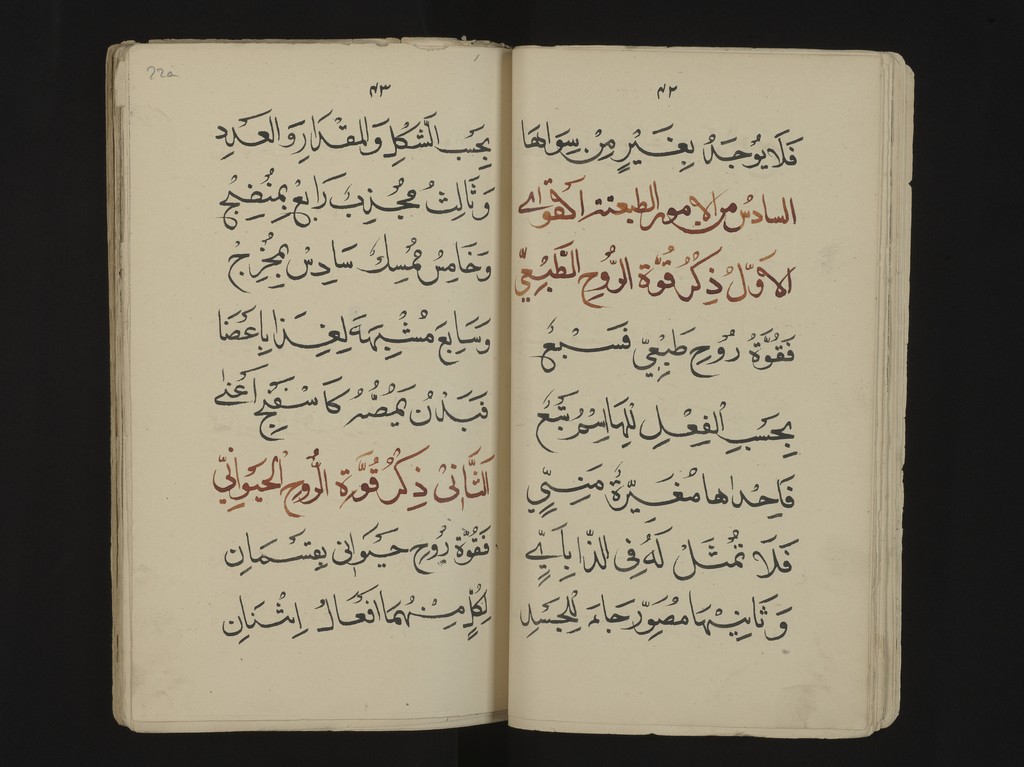 ٤٢
فَلَا يُوجَدُ بِغَيْرٍ مِنْ سِوَاهَا
السادسُ من الامور الطبعتر القوای
الاَوّلُ ذِكْرُ قُوَّة الرُّوحِ الطَّبِيعِيّ
فَقُوَّةُ رُوُحِ طَبِيْعِيّ فَسَبْعٌ
بِحَسْبِ الْفِعْلِ لَهَا اِسْمُ تَبَعٌ
فَاِحْدَاها مُغَيِّرَةُ مَنِيِّي
فَلَا تُمْثَلْ لَهُ فِى الذَّا بِأَيِّي
وَثَانِيْهَا مُصَوِّرْ جَاءَ لِلْجَسَدِ
٤٣
بِحَسْبِ الشَّكْلِ وَالمِقْدَارِ وَالعَدَدِ
وَثَالِثُ مُجْذِبْ رَابِعْ بِمُنْضِجْ
وَخَامِسُ مُمْسِكْ سَادِسْ بِمُخْرِجْ
وَسَابِعَ مُشْبِهَةَ لِغِذَا بِاَعْضَا
فَبَدَنُ يَمُصُّهُ كَاسْفَنْجِ اَعْنَى
اَلثَّانِىْ ذِكْرُ قُوَّةِ الرُّوْحِ الْحَيَوَانِيِّ
فَقُوَّة رُوْحِ حَيَوَانِى بِقِسْمَانِ
لِكُلٍّ مِنْهُمَا اَفْعَالُ اِثْنَانِ
22a